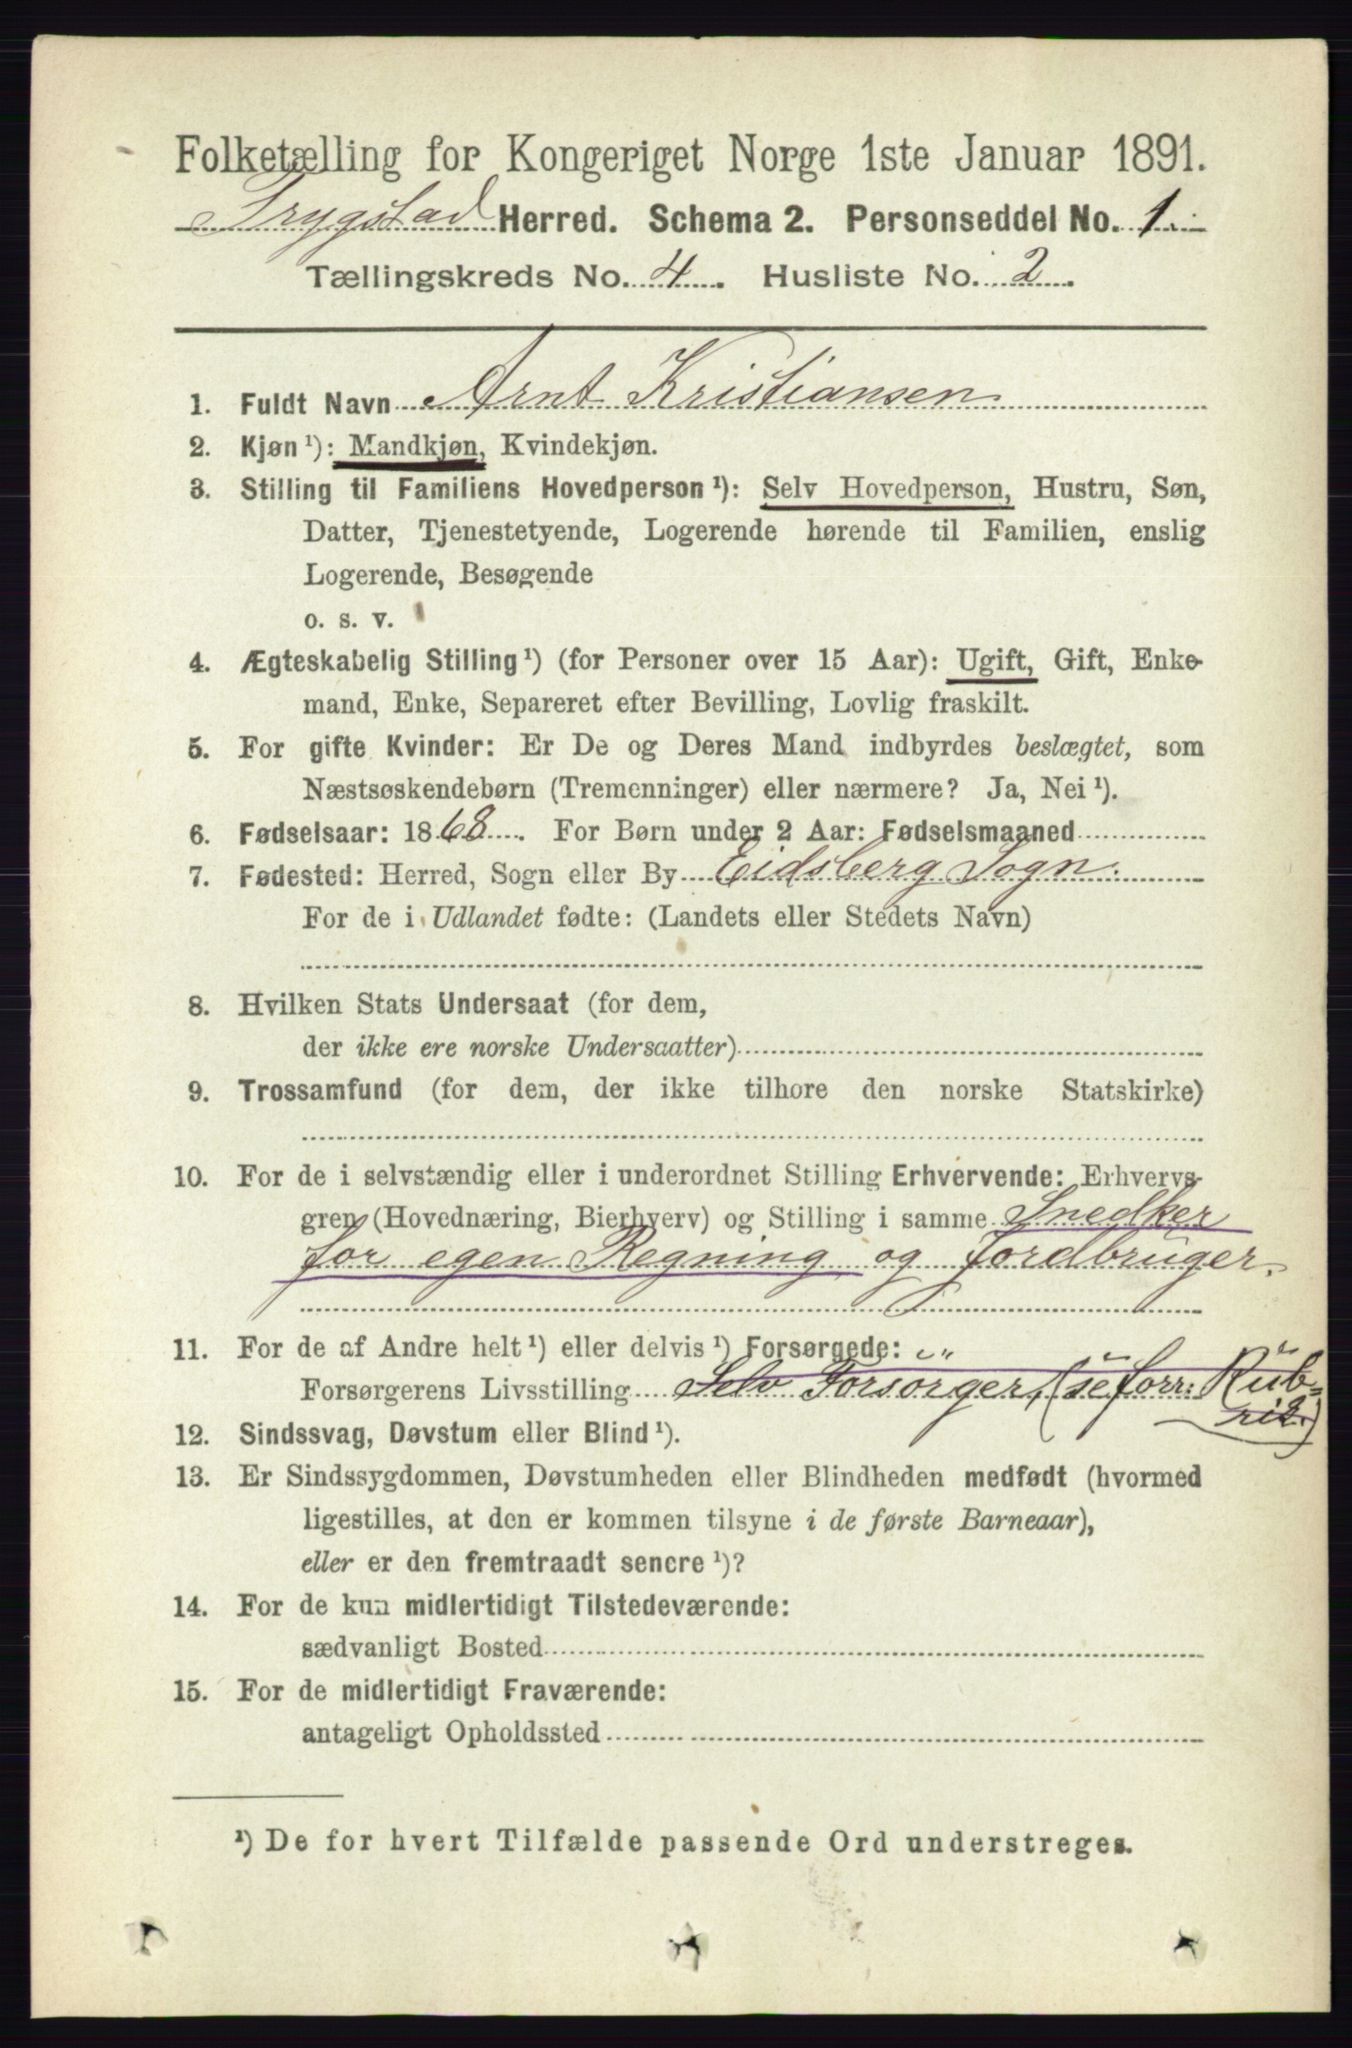 Folketælling for Kongeriget Norge 1ste Januar 1891.
Trygstad Herred. Schema 2. Personseddel No. 1.
Tællingskreds No. 4. Husliste No. 2.
1. Fuldt Navn Arnt Kristiansen
2. Kjøn ¹): Mandkjøn, Kvindekjøn.
3. Stilling til Familiens Hovedperson ¹): Selv Hovedperson, Hustru, Søn,
Datter, Tjenestetyende, Logerende hørende til Familien, enslig
Logerende, Besøgende
o. s. v.
4. Ægteskabelig Stilling ¹) (for Personer over 15 Aar): Ugift, Gift, Enke-
mand, Enke, Separeret efter Bevilling, Lovlig fraskilt.
5. For gifte Kvinder: Er De og Deres Mand indbyrdes beslægtet, som
Næstsøskendebørn (Tremenninger) eller nærmere? Ja, Nei ¹).
6. Fødselsaar: 1868. For Børn under 2 Aar: Fødselsmaaned
7. Fødested: Herred, Sogn eller By Eidsberg Sogn.
For de i Udlandet fødte: (Landets eller Stedets Navn)
8. Hvilken Stats Undersaat (for dem,
der ikke ere norske Undersaatter)
9. Trossamfund (for dem, der ikke tilhore den norske Statskirke)
10. For de i selvstændig eller i underordnet Stilling Erhvervende: Erhvervs-
gren (Hovednæring, Bierhverv) og Stilling i samme Snedker
for egen Regning og Jordbruger.
11. For de af Andre helt ¹) eller delvis ¹) Forsørgede:
Forsørgerens Livsstilling Selv Forsørger, (se forr: Rub-
rik.)
12. Sindssvag, Døvstum eller Blind ¹).
13. Er Sindssygdommen, Døvstumheden eller Blindheden medfødt (hvormed
ligestilles, at den er kommen tilsyne i de første Barneaar),
eller er den fremtraadt senere ¹)?
14. For de kun midlertidigt Tilstedeværende:
sædvanligt Bosted
15. For de midlertidigt Fraværende:
antageligt Opholdssted
¹) De for hvert Tilfælde passende Ord understreges.